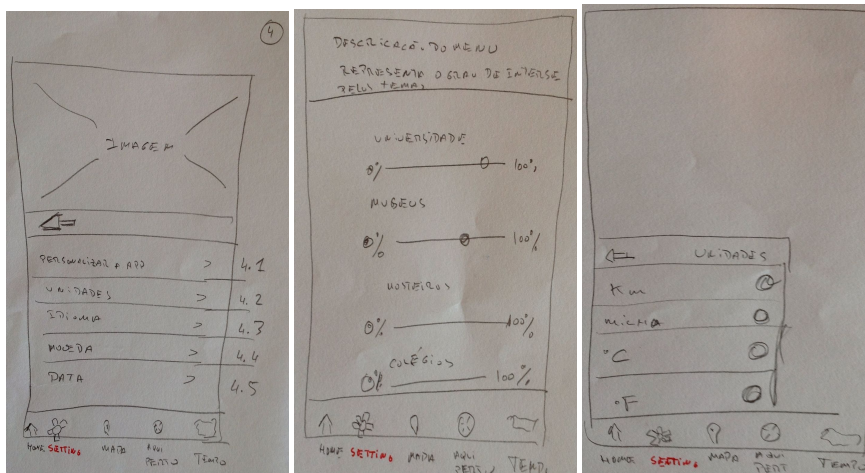 4
IMAGEM
PERSONALIZAR A APP > 4.1
UNIDADES > 4.2
IDIOMA > 4.3
MOVEDA > 4.4
DATA > 4.5
HOME SETTING MAPA AQUI PERTO TEMPO
DESCRICACÃO DO MENU
REPRESENTA O GRAU DE INTERSE
PELOS TEMAS
UNIVERSIDADE
0% 100%
MUSEUS
0% 100%
MOSTEIROS
0% 100%
COLÉGIOS
0% 100%
HOME SETTING MAPA AQUI TEMPO
UNIDADES
Km
MILHA
°C
°F
HOME SETTING MAPA AQUI PERT TEMPO